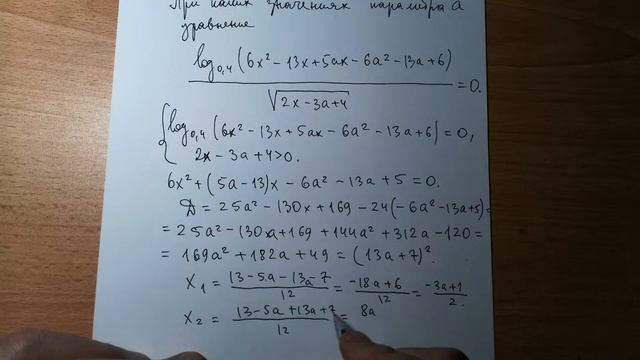 При каких значениях параметра а
уравнение
log₀,₄(6x² - 13x + 5ax - 6a² - 13a + 6) / √(2x - 3a + 4) = 0.
{ log₀,₄(6x² - 13x + 5ax - 6a² - 13a + 6) = 0,
2x - 3a + 4 > 0.
6x² + (5a - 13)x - 6a² - 13a + 5 = 0.
D = 25a² - 130x + 169 - 24(-6a² - 13a + 5) =
= 25a² - 130a + 169 + 144a² + 312a - 120 =
= 169a² + 182a + 49 = (13a + 7)².
x₁ = (13 - 5a - 13a - 7) / 12 = (-18a + 6) / 12 = (-3a + 1) / 2.
x₂ = (13 - 5a + 13a + 7) / 12 = 8a